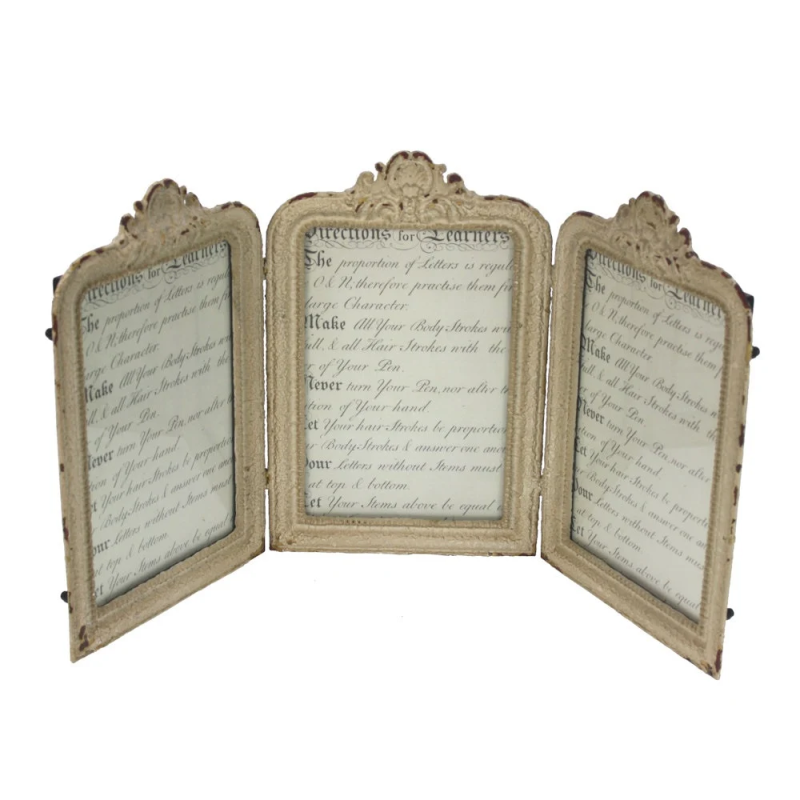 Directions for Learners
The proportion of Letters is regul
O & N, therefore practise them fi
large Character.
Make All Your Body Strokes w
ull, & all Hair Strokes with the
r of Your Pen.
Never turn Your Pen, nor alter t
tion of Your hand.
Let Your hair strokes be proportion
r Body Strokes & answer one ano
Your Letters without Stems must
at top & bottom.
Let Your Stems above be equal
Directions for Learners
The proportion of Letters is regul
O & N, therefore practise them fir
large Character.
Make All Your Body Strokes wi
ull, & all Hair Strokes with the
r of Your Pen.
Never turn Your Pen, nor alter th
tion of Your hand.
Let Your hair strokes be proportion
r Body Strokes & answer one anot
Your Letters without Stems must
at top & bottom.
Let Your Items above be equal
Directions for Learner
The proportion of Letters is regu
O & N, therefore practise them f
large Character.
Make All Your Body Strokes w
ull, & all Hair Strokes with the
of Your Pen.
Never turn Your Pen, nor alter t
tion of Your hand.
Let Your hair strokes be proporti
Body Strokes & answer one ano
Your Letters without Items must
at top & bottom.
Let Your Items above be equal